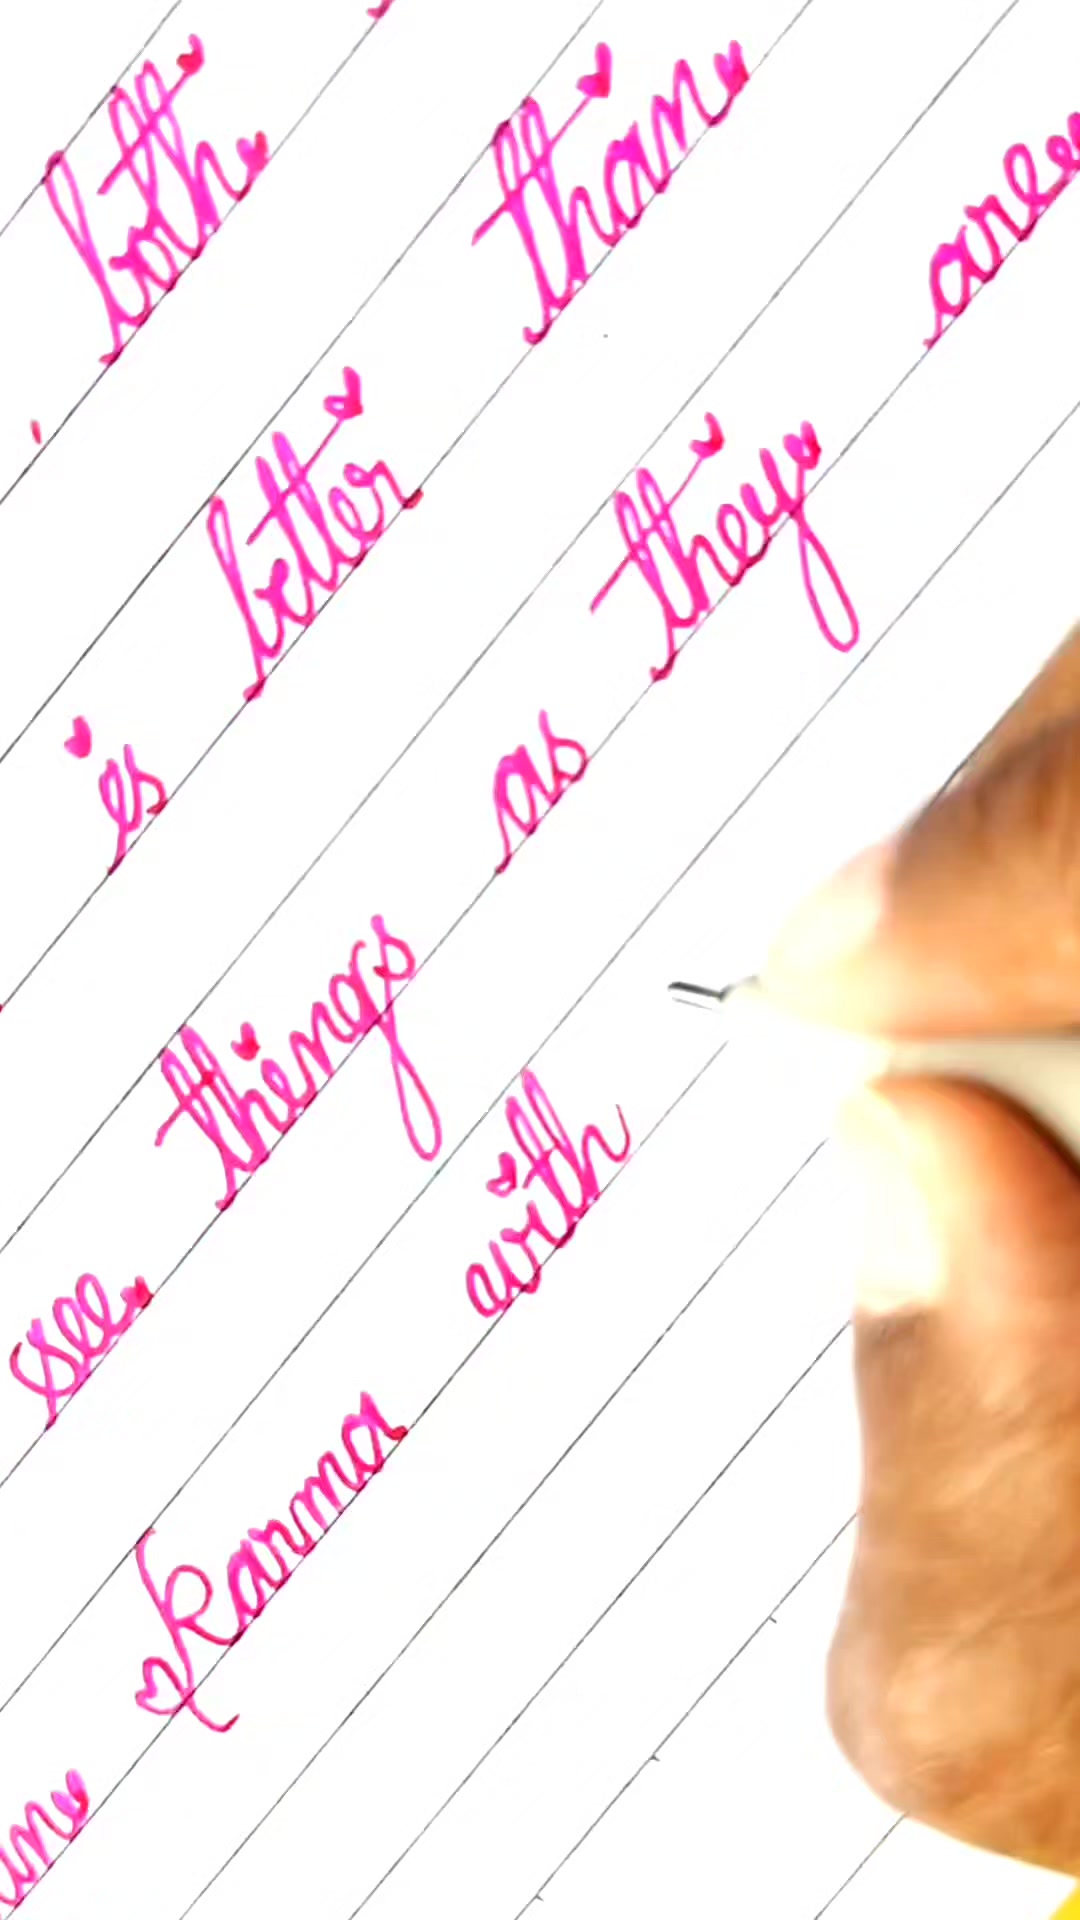 both
is better than
see things as they are
karma with